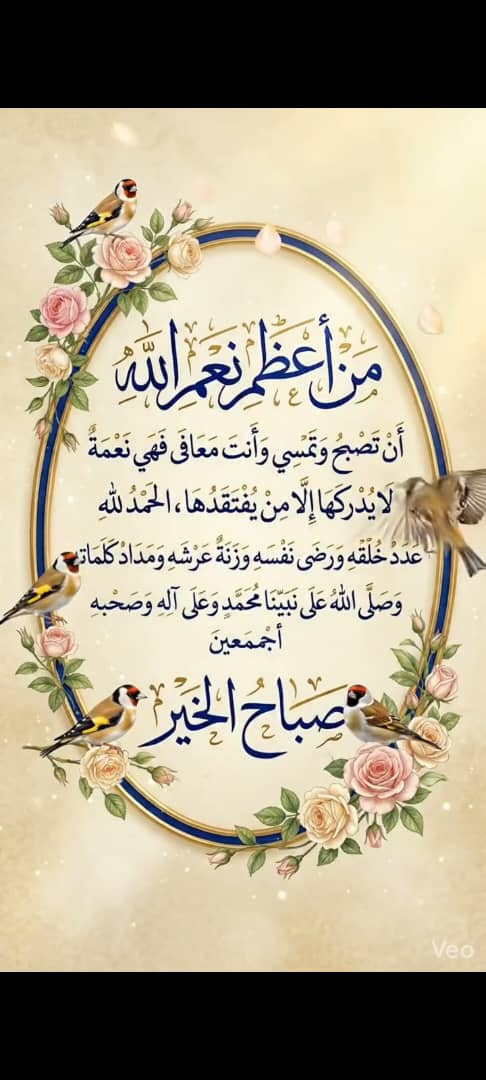 مِنْ أَعْظَمِ نِعَمِ اللهِ
أَنْ تَصْبحُ وَتَمْسِي وَأَنتَ مَعَافَى فَهَي نَعْمَةٌ
لَا يُدْرِكَهَا إِلَّا مِنْ يُفْتَقَدُهَا، الحَمْدُ للهِ
عَدَدُ خُلْقْهِ وَرَضَى نَفْسَهِ وَزَنَةُ عَرْشَه وَمَدَادُ كَلَمَاته
وَصَلَّى اللهُ عَلَى نَبَيِّنَا مُحَمَّدٍ وَعَلَى آلِهِ وَصَحْبهِ
أَجْمَعينَ
صَبَاحُ الخَيْر
Veo